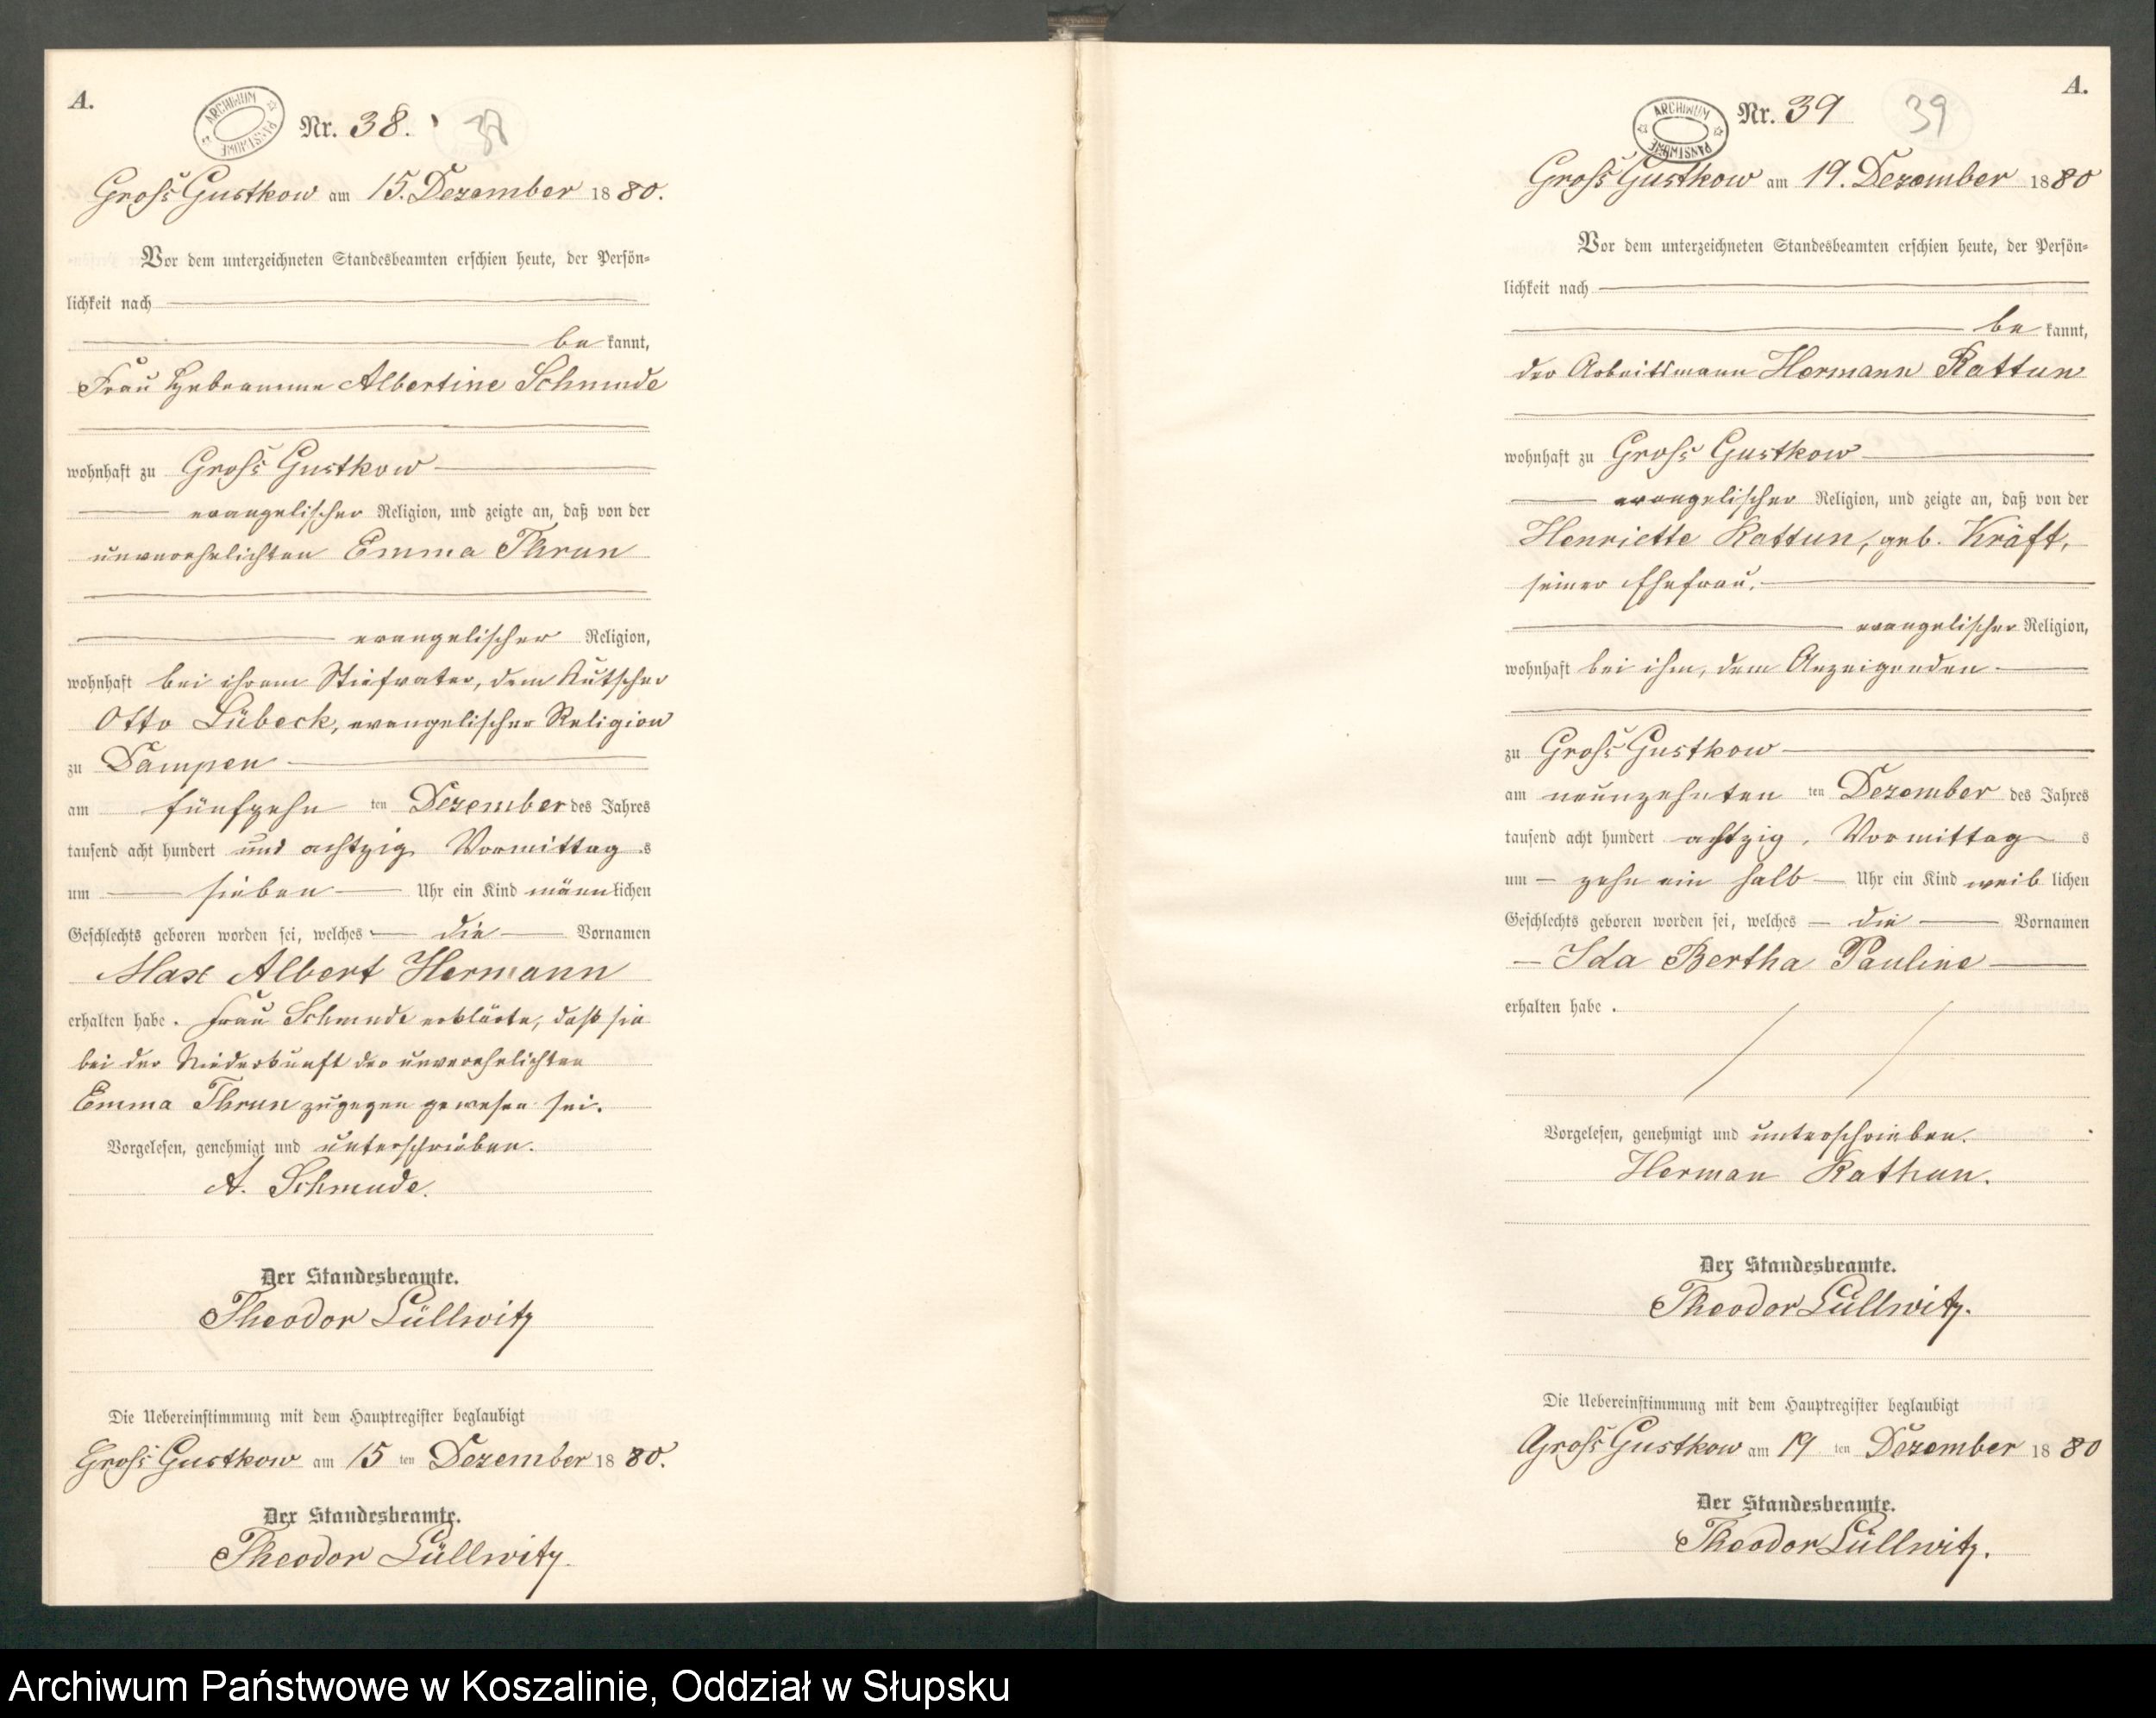 A.
ARCHIWUM PAŃSTWOWE
Nr. 38.
38
Groß Gustkow am 15. Dezember 1880.
Vor dem unterzeichneten Standesbeamten erschien heute, der Persön-
lichkeit nach
be kannt,
Frau Hebeamme Albertine Schmude
wohnhaft zu Groß Gustkow
evangelischer Religion, und zeigte an, daß von der
unverehelichten Emma Thrun
evangelischer Religion,
wohnhaft bei ihrem Stiefvater, dem Kutscher
Otto Lübeck, evangelischer Religion
zu Dampen
am fünfzehn ten Dezember des Jahres
tausend acht hundert und achtzig Vormittag s
um sieben Uhr ein Kind männlichen
Geschlechts geboren worden sei, welches die Vornamen
Max Albert Hermann
erhalten habe. Frau Schmude erklärte, daß sie
bei der Niederkunft der unverehelichten
Emma Thrun zugegen gewesen sei.
Vorgelesen, genehmigt und unterschrieben.
A. Schmude.
Der Standesbeamte.
Theodor Lüllwitz
Die Uebereinstimmung mit dem Hauptregister beglaubigt
Groß Gustkow am 15 ten Dezember 1880.
Der Standesbeamte.
Theodor Lüllwitz.
A.
ARCHIWUM PAŃSTWOWE
Nr. 39
39
Groß Gustkow am 19. Dezember 1880
Vor dem unterzeichneten Standesbeamten erschien heute, der Persön-
lichkeit nach
be kannt,
der Arbeitsmann Hermann Rattun
wohnhaft zu Groß Gustkow
evangelischer Religion, und zeigte an, daß von der
Henriette Rattun, geb. Kräft,
seiner Ehefrau.
evangelischer Religion,
wohnhaft bei ihm, dem Anzeigenden
zu Groß Gustkow
am neunzehnten ten Dezember des Jahres
tausend acht hundert achtzig, Vormittag s
um zehn ein halb Uhr ein Kind weib lichen
Geschlechts geboren worden sei, welches die Vornamen
Ida Bertha Pauline
erhalten habe.
Vorgelesen, genehmigt und unterschrieben.
Herman Rathun.
Der Standesbeamte.
Theodor Lüllwitz.
Die Uebereinstimmung mit dem Hauptregister beglaubigt
Groß Gustkow am 19 ten Dezember 1880
Der Standesbeamte.
Theodor Lüllwitz.
Archiwum Państwowe w Koszalinie, Oddział w Słupsku